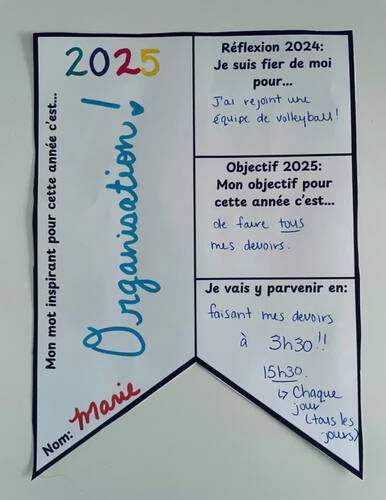 Mon mot inspirant pour cette année c'est...
2025
Organisation!
Nom: Marie
Réflexion 2024:
Je suis fier de moi
pour...
J'ai rejoint une
équipe de volleyball!
Objectif 2025:
Mon objectif pour
cette année c'est...
de faire tous
mes devoirs.
Je vais y parvenir en:
faisant mes devoirs
à 3h30!!
15h30.
↳ Chaque
jour
(tous les
jours)